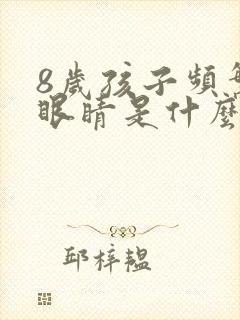 8歲孩子頻繁
眼睛是什麼
邱梓韞